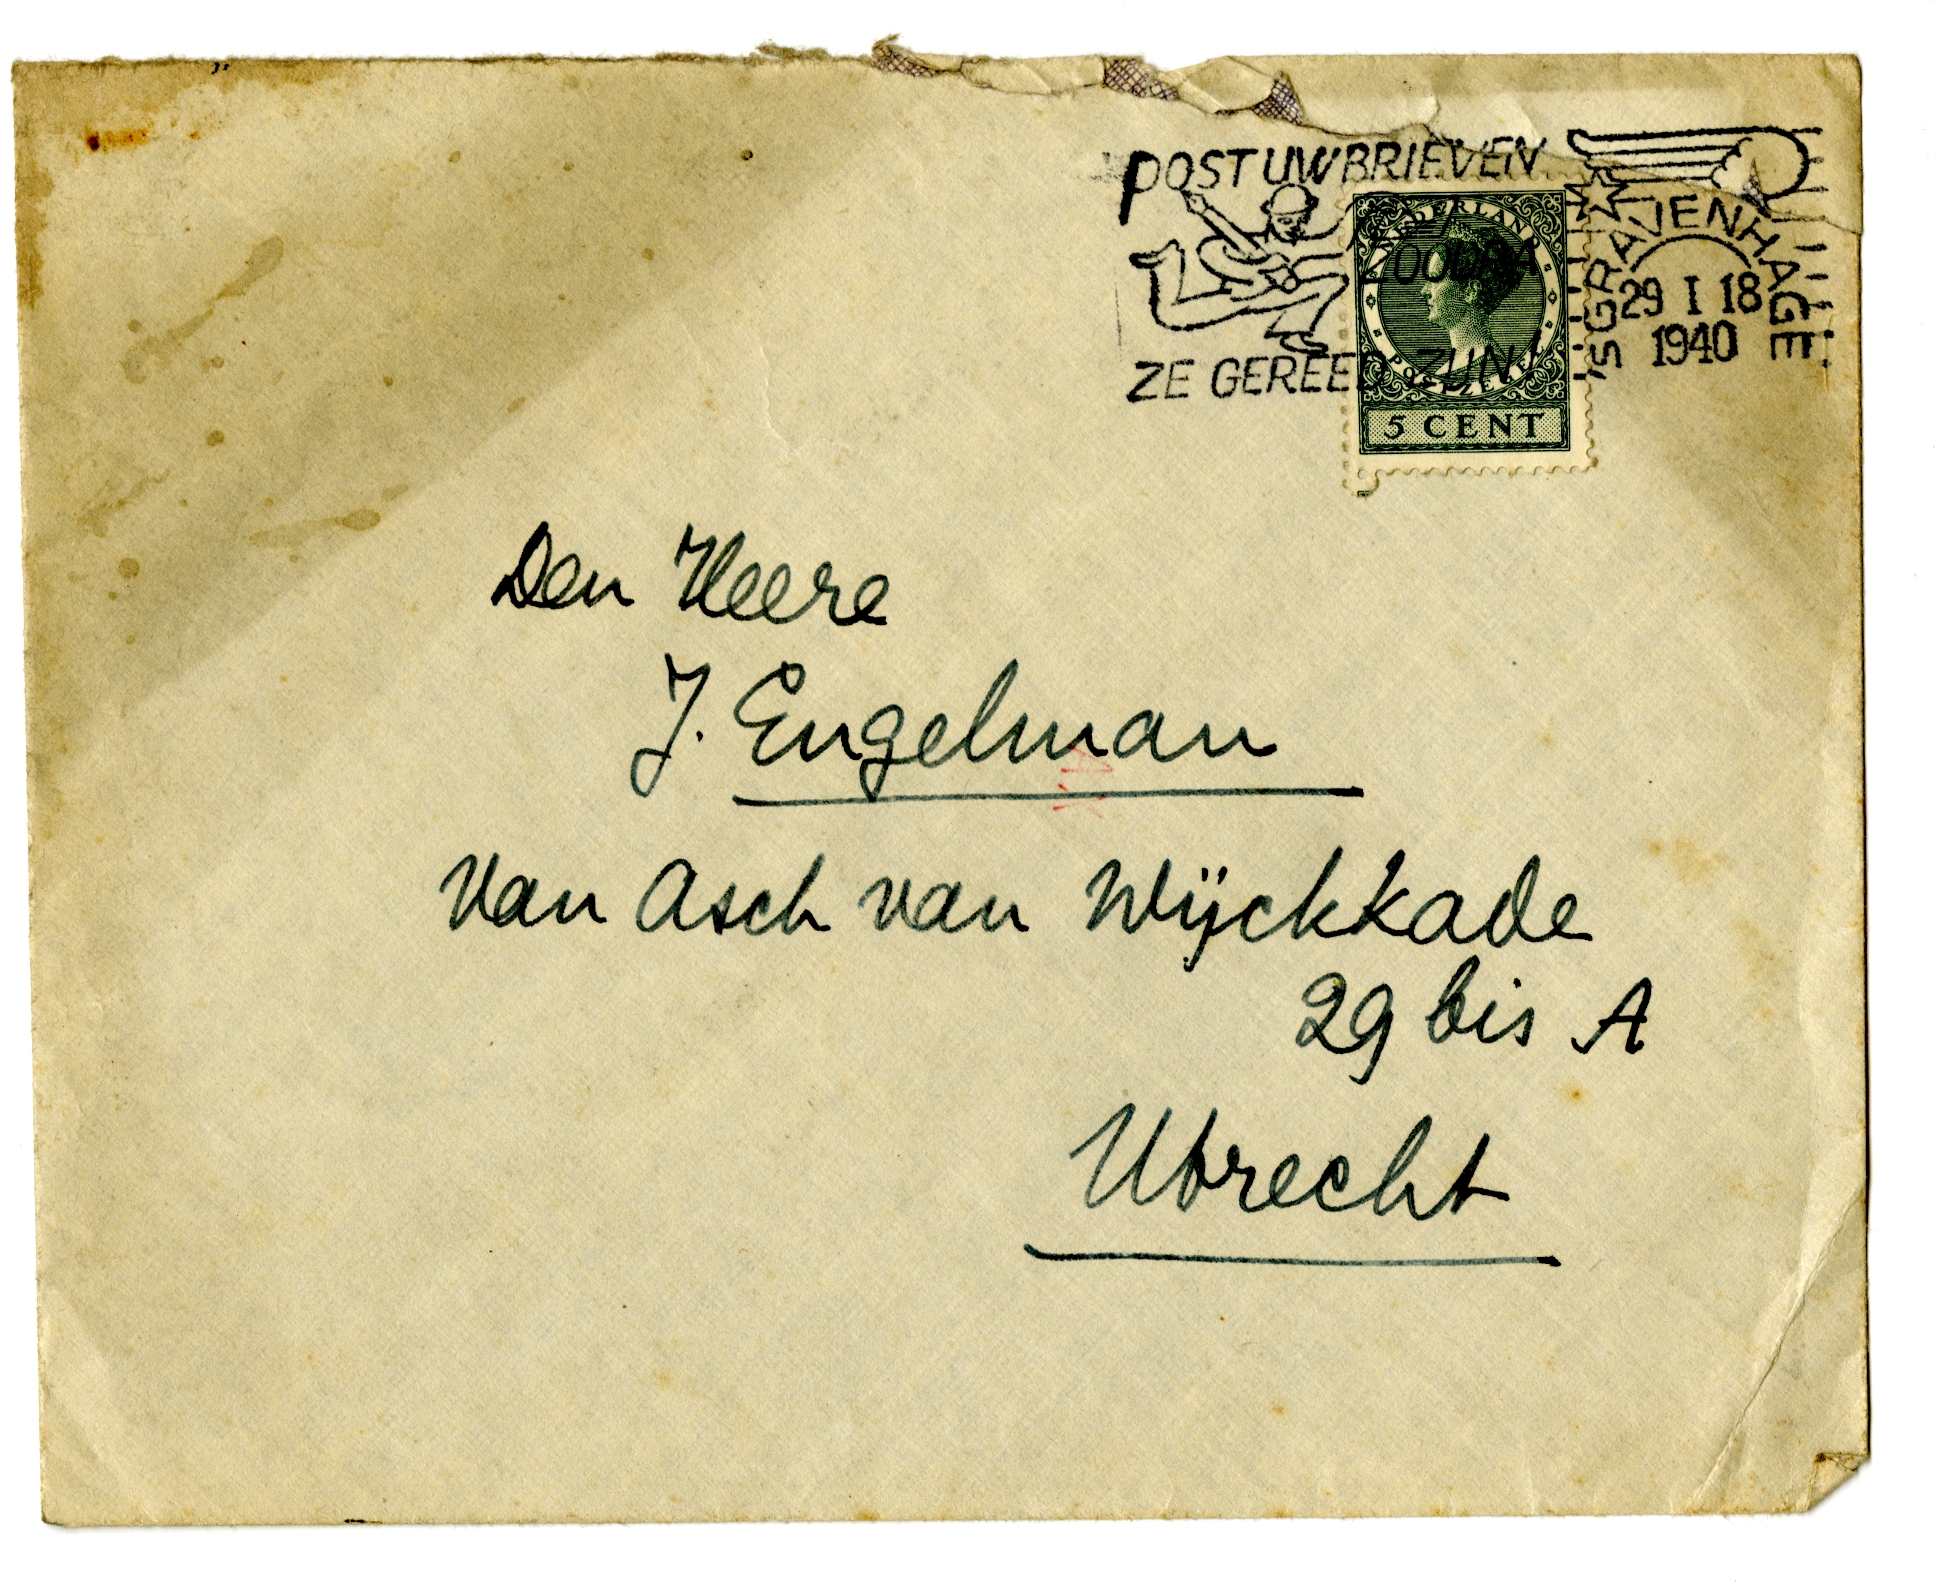 POST UW BRIEVEN
ZOODRA
ZE GEREED ZIJN!
'SGRAVENHAGE
29 I 18
1940
NEDERLAND
POSTZEGEL
5 CENT
Den Heere
J. Engelman
Van Asch van Wÿckkade
29 bis A
Utrecht